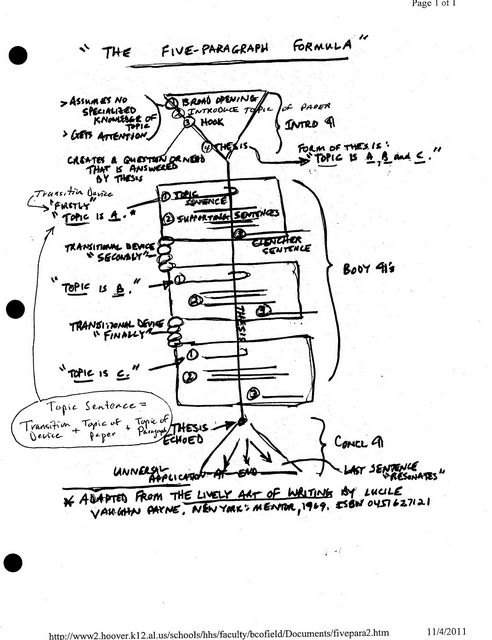 Page 1 of 1
"THE FIVE-PARAGRAPH FORMULA"
> ASSUMES NO
SPECIALIZED
KNOWLEDGE OF
TOPIC
> GETS ATTENTION
① BROAD OPENING
② INTRODUCE TOPIC OF PAPER
③ HOOK
④ THESIS
INTRO ¶
CREATES A QUESTION OR NEED
THAT IS ANSWERED
BY THESIS
FORM OF THESIS:
"TOPIC IS A, B and C."
Transition Device
"FIRSTLY"
"TOPIC IS A."
① TOPIC
SENTENCE
② SUPPORTING SENTENCES
③
CLENCHER
SENTENCE
TRANSITIONAL DEVICE
"SECONDLY"
"TOPIC IS B."
①
②
③
THESIS
BODY ¶'s
TRANSITIONAL DEVICE
"FINALLY"
"TOPIC IS C."
①
②
③
Topic Sentence =
Transition Device + Topic of Paper + Topic of Paragraph
THESIS
ECHOED
CONCL ¶
UNIVERSAL
APPLICATION AT END
LAST SENTENCE
"RESONATES"
* ADAPTED FROM THE LIVELY ART OF WRITING BY LUCILE
VAUGHN PAYNE. NEW YORK: MENTOR, 1969. ISBN 0451627121
http://www2.hoover.k12.al.us/schools/hhs/faculty/bcofield/Documents/fivepara2.htm
11/4/2011